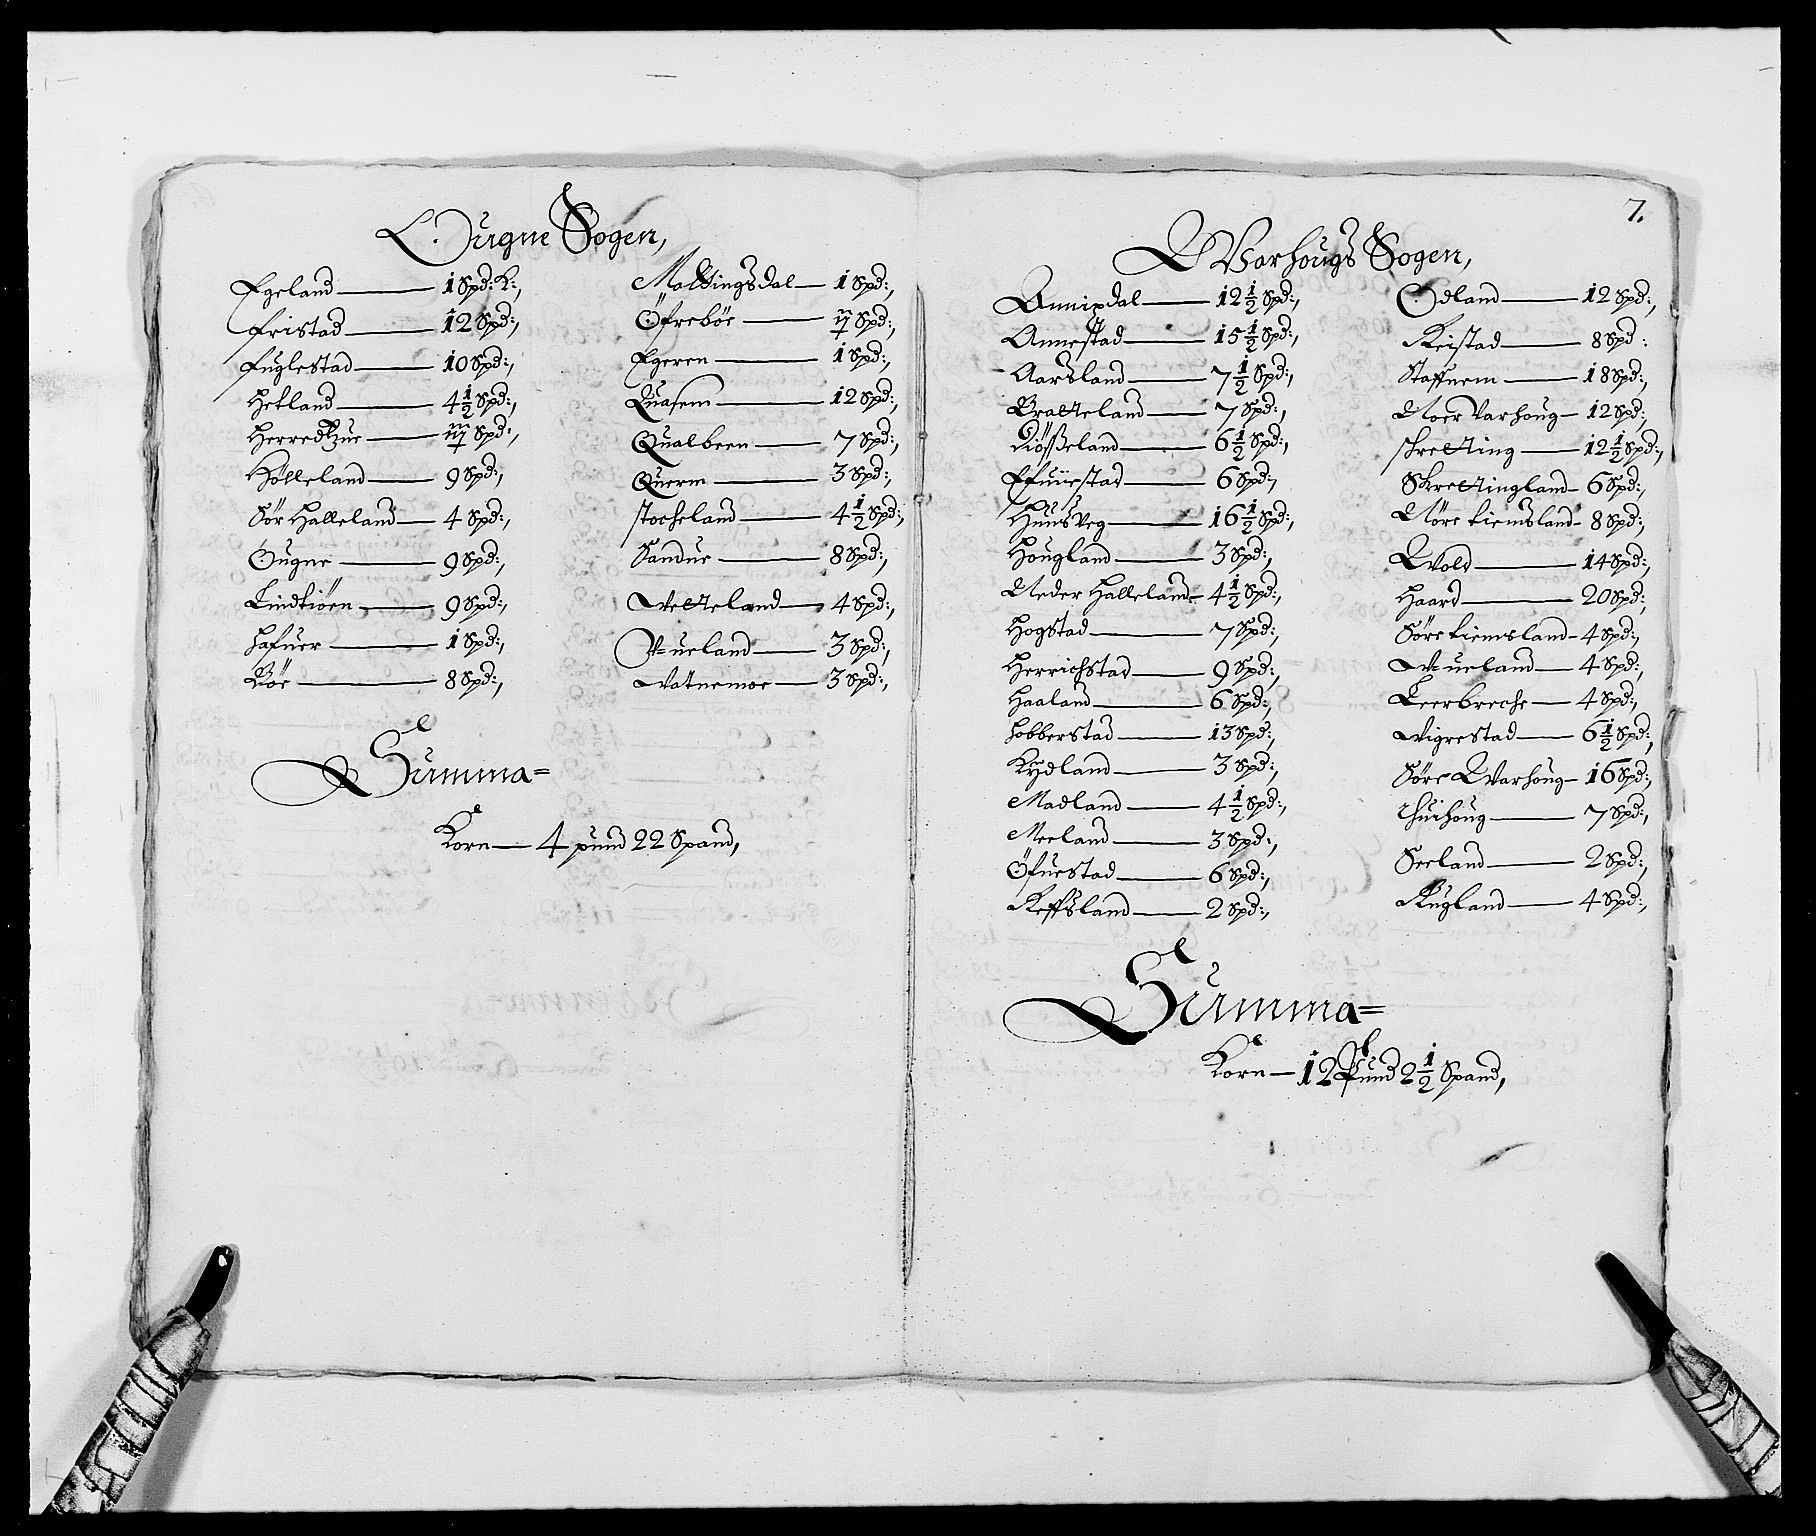 Ougne Sogen,
Egeland — 1 Spd: K:,
Fristad — 12 Spd:,
Fuglestad — 10 Spd:,
Hetland — 4 1/2 Spd:,
Spd:,
Hölleland — 9 Spd:,
Sör Halleland — 4 Spd:,
Ougne — 9 Spd:,
Lindtiörn — 9 Spd:,
Hafuer — 1 Spd:,
Böe — 8 Spd:,
Mattingsdal — 1 Spd:,
Öfreböe — Spd:,
Egeren — 1 Spd:,
Quasem — 12 Spd:,
Qualbeen — 7 Spd:,
Querm — 3 Spd:,
Stocheland — 4 1/2 Spd:,
Sandue — 8 Spd:,
Wetteland — 4 Spd:,
Wueland — 3 Spd:,
Watnemoe — 3 Spd:,
Summa =
Korn — 4 pund 22 Spand,
7.
Warhougs Sogen,
Annisdal — 12 1/2 Spd:,
Annestad — 15 1/2 Spd:,
Aarsland — 7 1/2 Spd:,
Bratteland — 7 Spd:,
6 1/2 Spd:,
Efuestad — 6 Spd:,
Huusveg — 16 1/2 Spd:,
Hougland — 3 Spd:,
Neder Halleland — 4 1/2 Spd:,
Hogstad — 7 Spd:,
Herrichstad — 9 Spd:,
Haaland — 6 Spd:,
Hobberstad — 13 Spd:,
Kydland — 3 Spd:,
Madland — 4 1/2 Spd:,
Meeland — 3 Spd:,
Öfuestad — 6 Spd:,
Reffsland — 2 Spd:,
Odland — 12 Spd:,
Reistad — 8 Spd:
Stafnem — 18 Spd:,
Noer Varhoug — 12 Spd:,
Skretting — 12 1/2 Spd:,
Skrettingland — 6 Spd:,
Nöre Tiemsland — 8 Spd:,
Wold — 14 Spd:,
Haard — 20 Spd:,
Söre Tiemsland — 4 Spd:,
Wueland — 4 Spd:,
Leerbreche — 4 Spd:,
Wigrestad — 6 1/2 Spd:,
Söre Warhoug — 16 Spd:,
Thuihoug — 7 Spd:,
Seeland — 2 Spd:,
Rugland — 4 Spd:,
Summa =
Korn — 12 Pund 2 1/2 Spand,